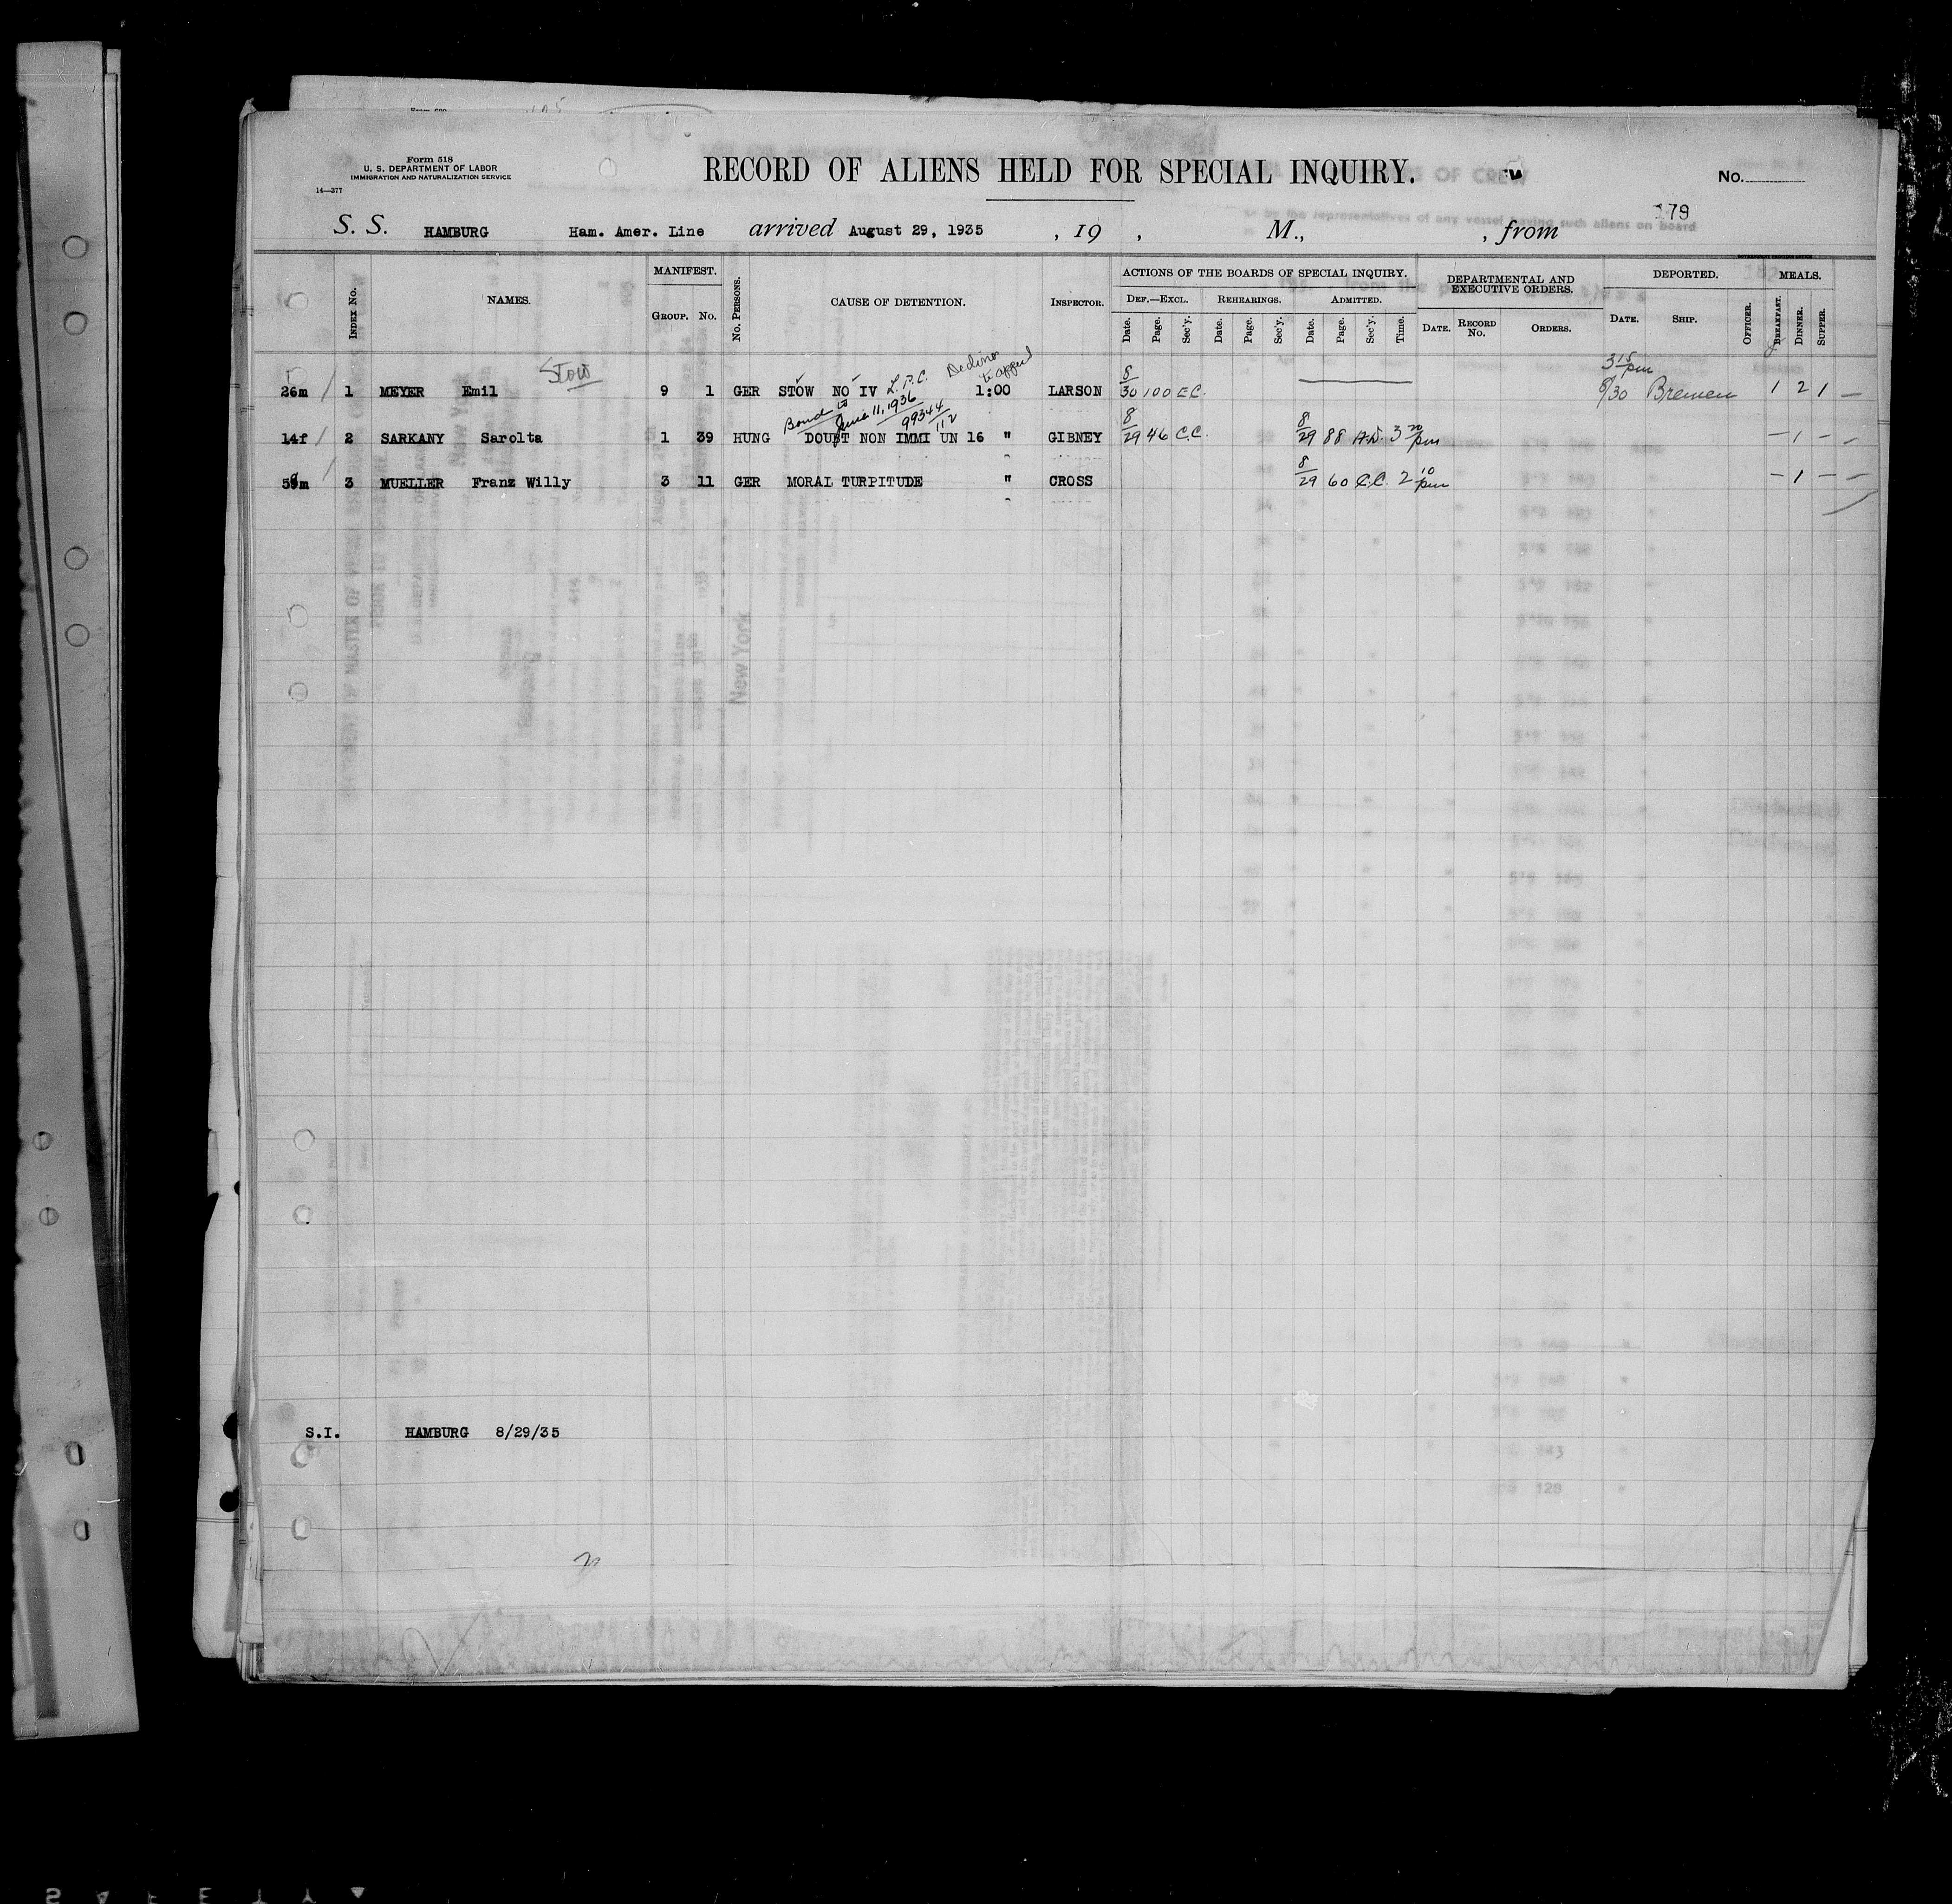 Form 518
U. S. DEPARTMENT OF LABOR
IMMIGRATION AND NATURALIZATION SERVICE
14—377
RECORD OF ALIENS HELD FOR SPECIAL INQUIRY.
No.
179
S. S. HAMBURG Ham. Amer. Line arrived August 29, 1935 , 19 , M., , from
INDEX No. NAMES. MANIFEST. GROUP. No. No. PERSONS. CAUSE OF DETENTION. INSPECTOR. ACTIONS OF THE BOARDS OF SPECIAL INQUIRY. DEPARTMENTAL AND EXECUTIVE ORDERS. DEPORTED. MEALS.
DEF.—EXCL. REHEARINGS. ADMITTED.
Date. Page. Sec'y. Date. Page. Sec'y. Date. Page. Sec'y. Time. DATE. RECORD No. ORDERS. DATE. SHIP. OFFICER. BREAKFAST. DINNER. SUPPER.
Stow
L.P.C. Declines to appeal
3 15 pm
26m 1 MEYER Emil 9 1 GER STOW NO IV 1:00 LARSON 8/30 100 E.C. 8/30 Bremen 1 2 1 —
Bond to June 11, 1936 99344/112
14f 2 SARKANY Sarolta 1 39 HUNG DOUBT NON IMMI UN 16 " GIBNEY 8/29 46 C.C. 8/29 88 A.D. 3 20 pm — 1 — —
3 MUELLER Franz Willy 3 11 GER MORAL TURPITUDE " CROSS 8/29 60 C.C. 2 10 pm — 1 — —
S.I. HAMBURG 8/29/35